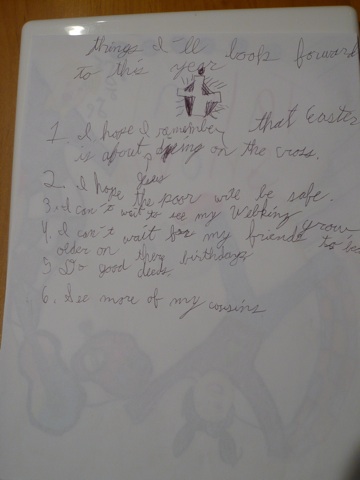 things I'll look forward
to this year
1. I hope I remember that Easter
is about Jesus dying on the cross.
2. I hope the poor will be safe.
3. I can't wait to see my
4. I can't wait for my friends to grow
older on they birthdays
5. Do good deeds.
6. See more of my cousins